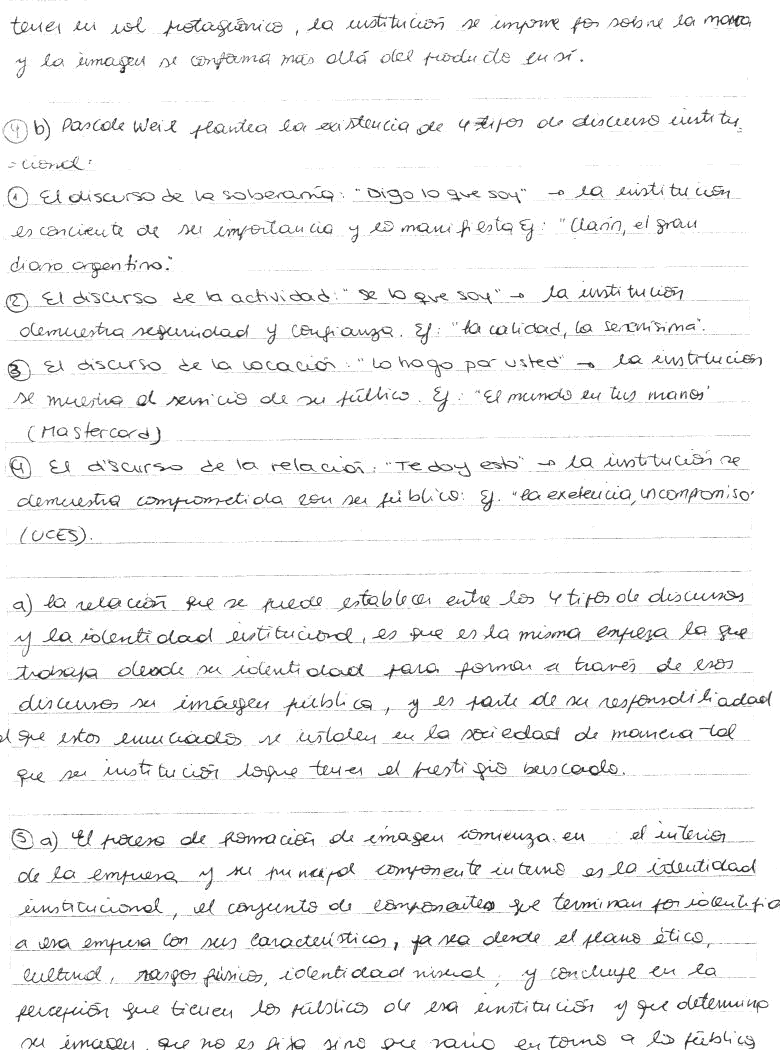 tener un rol protagónico, la institución se impone por sobre la marca
y la imagen se conforma más allá del producto en sí.
④ b) Pascale Weil plantea la existencia de 4 tipos de discurso institu-
-cional:
① El discurso de la soberanía: "Digo lo que soy" → la institución
es conciente de su importancia y lo manifiesta Ej: "Clarín, el gran
diario argentino."
② El discurso de la actividad: "Se lo que soy" → la institución
demuestra seguridad y confianza. Ej: "La calidad, La Serenísima".
③ El discurso de la vocación: "Lo hago por usted" → la institución
se muestra al servicio de su público. Ej: "El mundo en tus manos"
(Mastercard)
④ El discurso de la relación: "Te doy esto" → la institución se
demuestra comprometida con su público: Ej. "La exelencia, un compromiso"
(UCES).
a) La relación que se puede establecer entre los 4 tipos de discursos
y la identidad institucional, es que es la misma empresa la que
trabaja desde su identidad para formar a través de esos
discursos su imágen pública, y es parte de su responsabiliadad
el que estos enunciados se instalen en la sociedad de manera tal
que su institución logre tener el prestigio buscado.
⑤ a) El proceso de formación de imagen comienza en el interior
de la empresa y su principal componente interno es la identidad
institucional, el conjunto de componentes que terminan por identifica
a esa empresa con sus características, ya sea desde el plano ético,
cultural, rasgos físicos, identidad visual, y concluye en la
percepción que tienen los públicos de esa institución y que determina
su imagen, que no es fija sino que varía en torno a los públicos